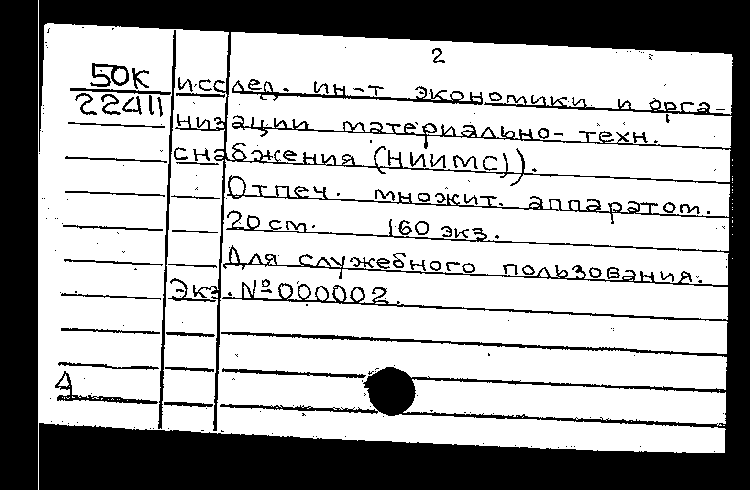 2
50К
22411
исслед. ин-т экономики и орга-
низации материально-техн.
снабжения (НИИМС)).
Отпеч. множит. аппаратом.
20 см. 160 экз.
Для служебного пользования.
Экз. №000002.
Д